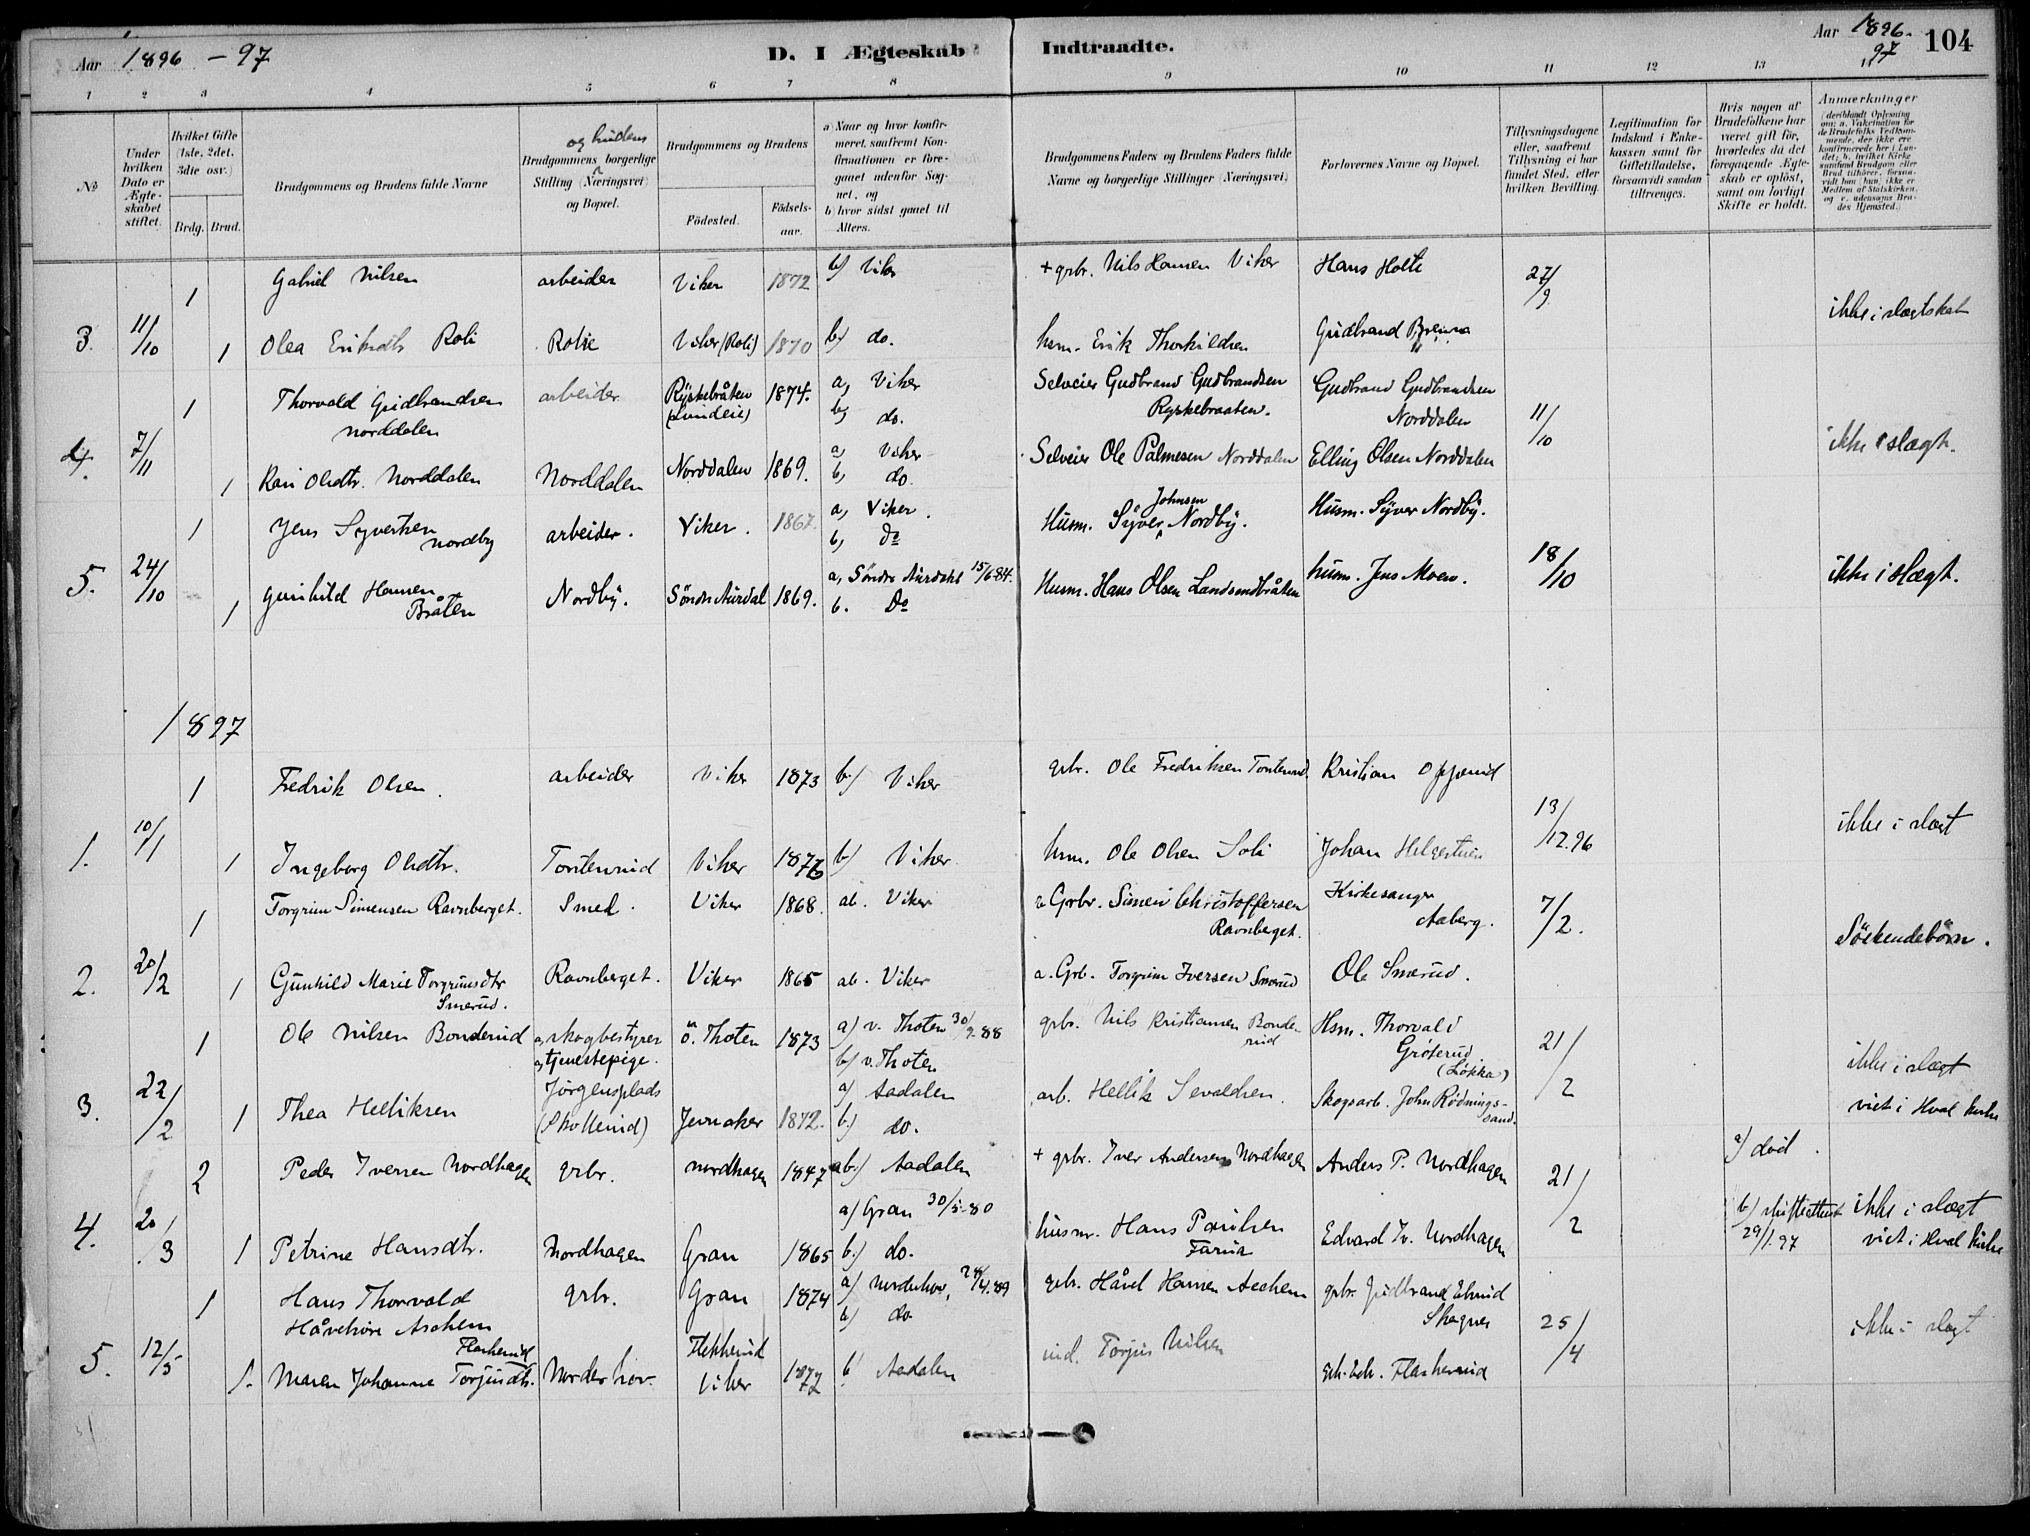 Aar 1896 - 97
D. I Ægteskab Indtraadte.
Aar 1896-97
104
1 2 3 4 5 6 7 8 9 10 11 12 13
№
Under hvilken Dato er Ægteskabet stiftet.
Hvilket Gifte (1ste, 2det, 3die osv.)
Brdg. Brud.
Brudgommens og Brudens fulde Navne
Brudgommens og brudens borgerlige Stilling (Næringsvei) og Bopæl.
Brudgommens og Brudens
Fødested. Fødselsaar.
a) Naar og hvor konfirmeret, saafremt Konfirmationen er foregaaet udenfor Sognet, og
b) hvor sidst gaaet til Alters.
Brudgommens Faders og Brudens Faders fulde Navne og borgerlige Stillinger (Næringsvei)
Forlovernes Navne og Bopæl.
Tillysningsdagene eller, saafremt Tillysning ei har fundet Sted, efter hvilken Bevilling.
Legitimation for Indskud i Enkekassen samt for Giftetilladelse, forsaavidt saadan tiltrænges.
Hvis nogen af Brudefolkene har været gift før, hvorledes da det foregaaende Ægteskab er opløst, samt om lovligt Skifte er holdt.
Anmærkninger (deriblandt Oplysning om: a. Vakcination for de Brudefolks Vedkommende, der ikke ere konfirmerede her i Landet; b. hvilket Kirkesamfund Brudgom eller Brud tilhører, forsaavidt han (hun) ikke er Medlem af Statskirken, og c. udensogns Brudes Hjemsted.)
1 Gabriel Nilsen arbeider Viker 1872 b) Viker + grb. Nils Hansen Viker Hans Holte 27/9
3. 11/10 1 Olea Eriksdtr Roli Rolie Viker (Roli) 1870 b) do. hsm. Erik Thorkildsen Gudbrand ikke i slægtskab
1 Thorvald Gudbrandsen Norddalen arbeider Ryskebråten (Lundeie) 1874. a, Viker b, do. Selveier Gudbrand Gudbrandsen Ryskebraaten. Gudbrand Gudbrandsen Norddalen 11/10
4. 7/11 1 Kari Olsdtr. Norddalen Norddalen Norddalen 1869. a, Viker b, do. Selveier Ole Palmesen Norddalen Elling Olsen Norddalen ikke i slægt.
1 Jens Syvertsen Nordby arbeider. Viker. 1867. a, Viker. b, do Husm. Syver Johnsen Nordby. Husm. Syver Nordby.
5. 24/10 1 Gunhild Hansen Bråten Nordby. Søndre Aurdal 1869. a, Søndre Aurdahl 15/6 84. b. Do Husm. Hans Olsen Landsendbråten husm. Jens Moen. 18/10 ikke i slægt.
1897
1 Fredrik Olsen. arbeider Viker 1873 b) Viker grb. Ole Fredriksen Tosterud Kristian Opperud
1. 10/1 1 Ingeborg Olsdtr. Tosterud Viker 1876 b) Viker hsm. Ole Olsen Soli Johan Helgestuen 13/12.96 ikke i slægt
1 Torgrim Simensen Ravnberget. Smed. Viker 1868. ab. Viker Grbr. Simen Christoffersen Ravnberget. Kirkesanger Aaberg. 7/2.
2. 20/2 1 Gunhild Marie Torgrimsdtr Smerud. Ravnberget. Viker 1865 ab. Viker Grb. Torgrim Iversen Smerud Ole Smerud. Söskendebörn.
1 Ole Nilsen Bonderud a, skogbestyrer a, tjenestepige. ö. Thoten 1873 a) v. Thoten 30/9 88 b) v. Thoten grb. Nils Kristiansen Bonderud Hsm. Thorvald Grøterud (Løkka) 21/2
3. 22/2 1 Thea Helliksen Jørgensplads (Skollerud) Jevnaker 1872. a) Aadalen b) do. arb. Hellik Sevaldsen. Skogsarb. John Rødningssand. ikke i slægt viet i Hval kirke
2 Peder Iversen Nordhagen grbr. Nordhagen 1847 ab.) Aadalen + grbr. Iver Andersen Nordhagen Anders P. Nordhagen 21/2 a) død.
4. 20/3 1 Petrine Hansdtr. Nordhagen Gran 1865 a) Gran 30/5-80 b.) do. husm. Hans Paulsen Edvard Iv. Nordhagen b) skifteattest 29/1.97 ikke i slægt viet i Hval kirke
1 Hans Thorvald Håvelsen Aschem grbr. Gran 1874 a) Norderhov, 28/4.89 b) do grbr. Håvel Hansen Aschem grbr. Gudbrand Skagnes
5. 12/5 1. Maren Johanne Torjusdtr. Flaskerud Norderhov. Flekkerud Viker 1872 b Aadalen ind. Torjus Nilsen Flaskerud 25/4 ikke i slægt